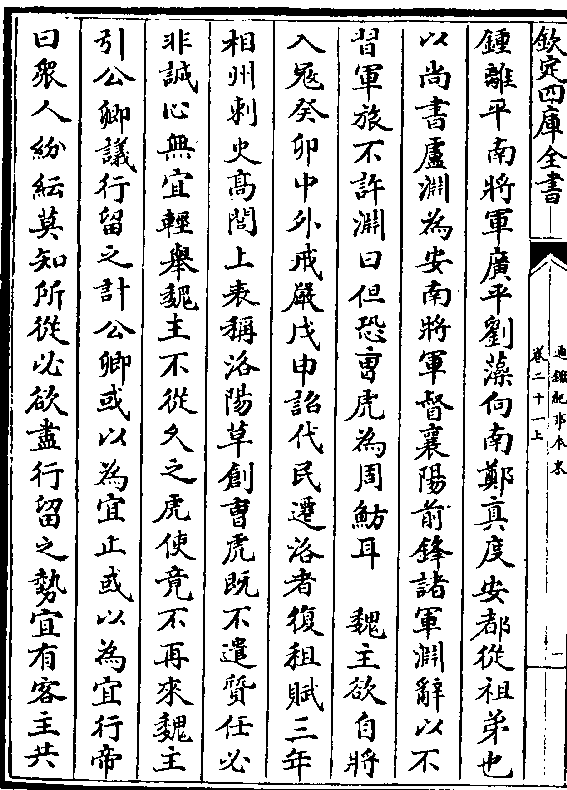 欽定四庫全書
通鑑紀事本末
卷二十一上
一
鍾離平南將軍廣平劉藻向南鄭真度安都從祖弟也
以尚書盧淵為安南將軍督襄陽前鋒諸軍淵辭以不
習軍旅不許淵曰但恐曹虎為周魴耳　魏主欲自將
入寇癸卯中外戒嚴戊申詔代民遷洛者復租賦三年
相州刺史高閭上表稱洛陽草創曹虎既不遣質任必
非誠心無宜輕舉魏主不從久之虎使竟不再來魏主
引公卿議行留之計公卿或以為宜止或以為宜行帝
曰衆人紛紜莫知所從必欲盡行留之勢宜有客主共